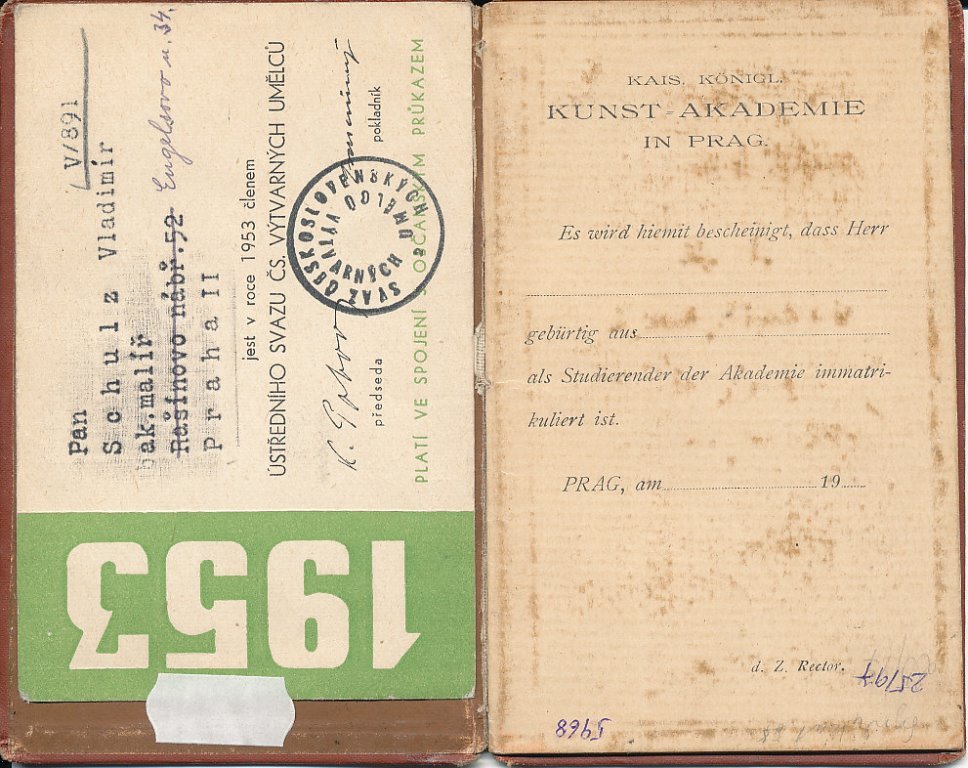 V/891
Pan
Schulz Vladimír
ak.malíř
Rašínovo nábř. 52 Engelsovo n. 34.
Praha II
jest v roce 1953 členem
ÚSTŘEDNÍHO SVAZU ČS. VÝTVARNÝCH UMĚLCŮ
předseda
pokladník
SVAZ ČESKOSLOVENSKÝCH
VÝTVARNÝCH UMĚLCŮ
PLATÍ VE SPOJENÍ S OBČANSKÝM PRŮKAZEM
1953
KAIS. KÖNIGL.
KUNST-AKADEMIE
IN PRAG.
Es wird hiemit bescheinigt, dass Herr
gebürtig aus
als Studierender der Akademie immatri-
kuliert ist.
PRAG, am 19
d. Z. Rector.
25/97
5968